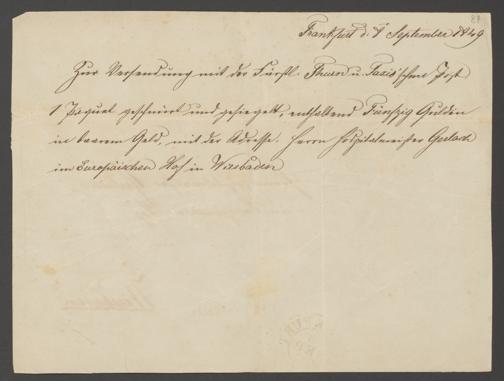 87
Frankfurt d. 1 September 1849
Zur Versendung mit der Fürstl. Thurn u. Taxis'schen Post
1 Paquet geschnürt und gesiegelt, enthaltend Fünfzig Gulden
in baarem Geld, mit der Adresse. Herrn Hospitalmeister Gerlach
im Europäischen Hof in Wiesbaden